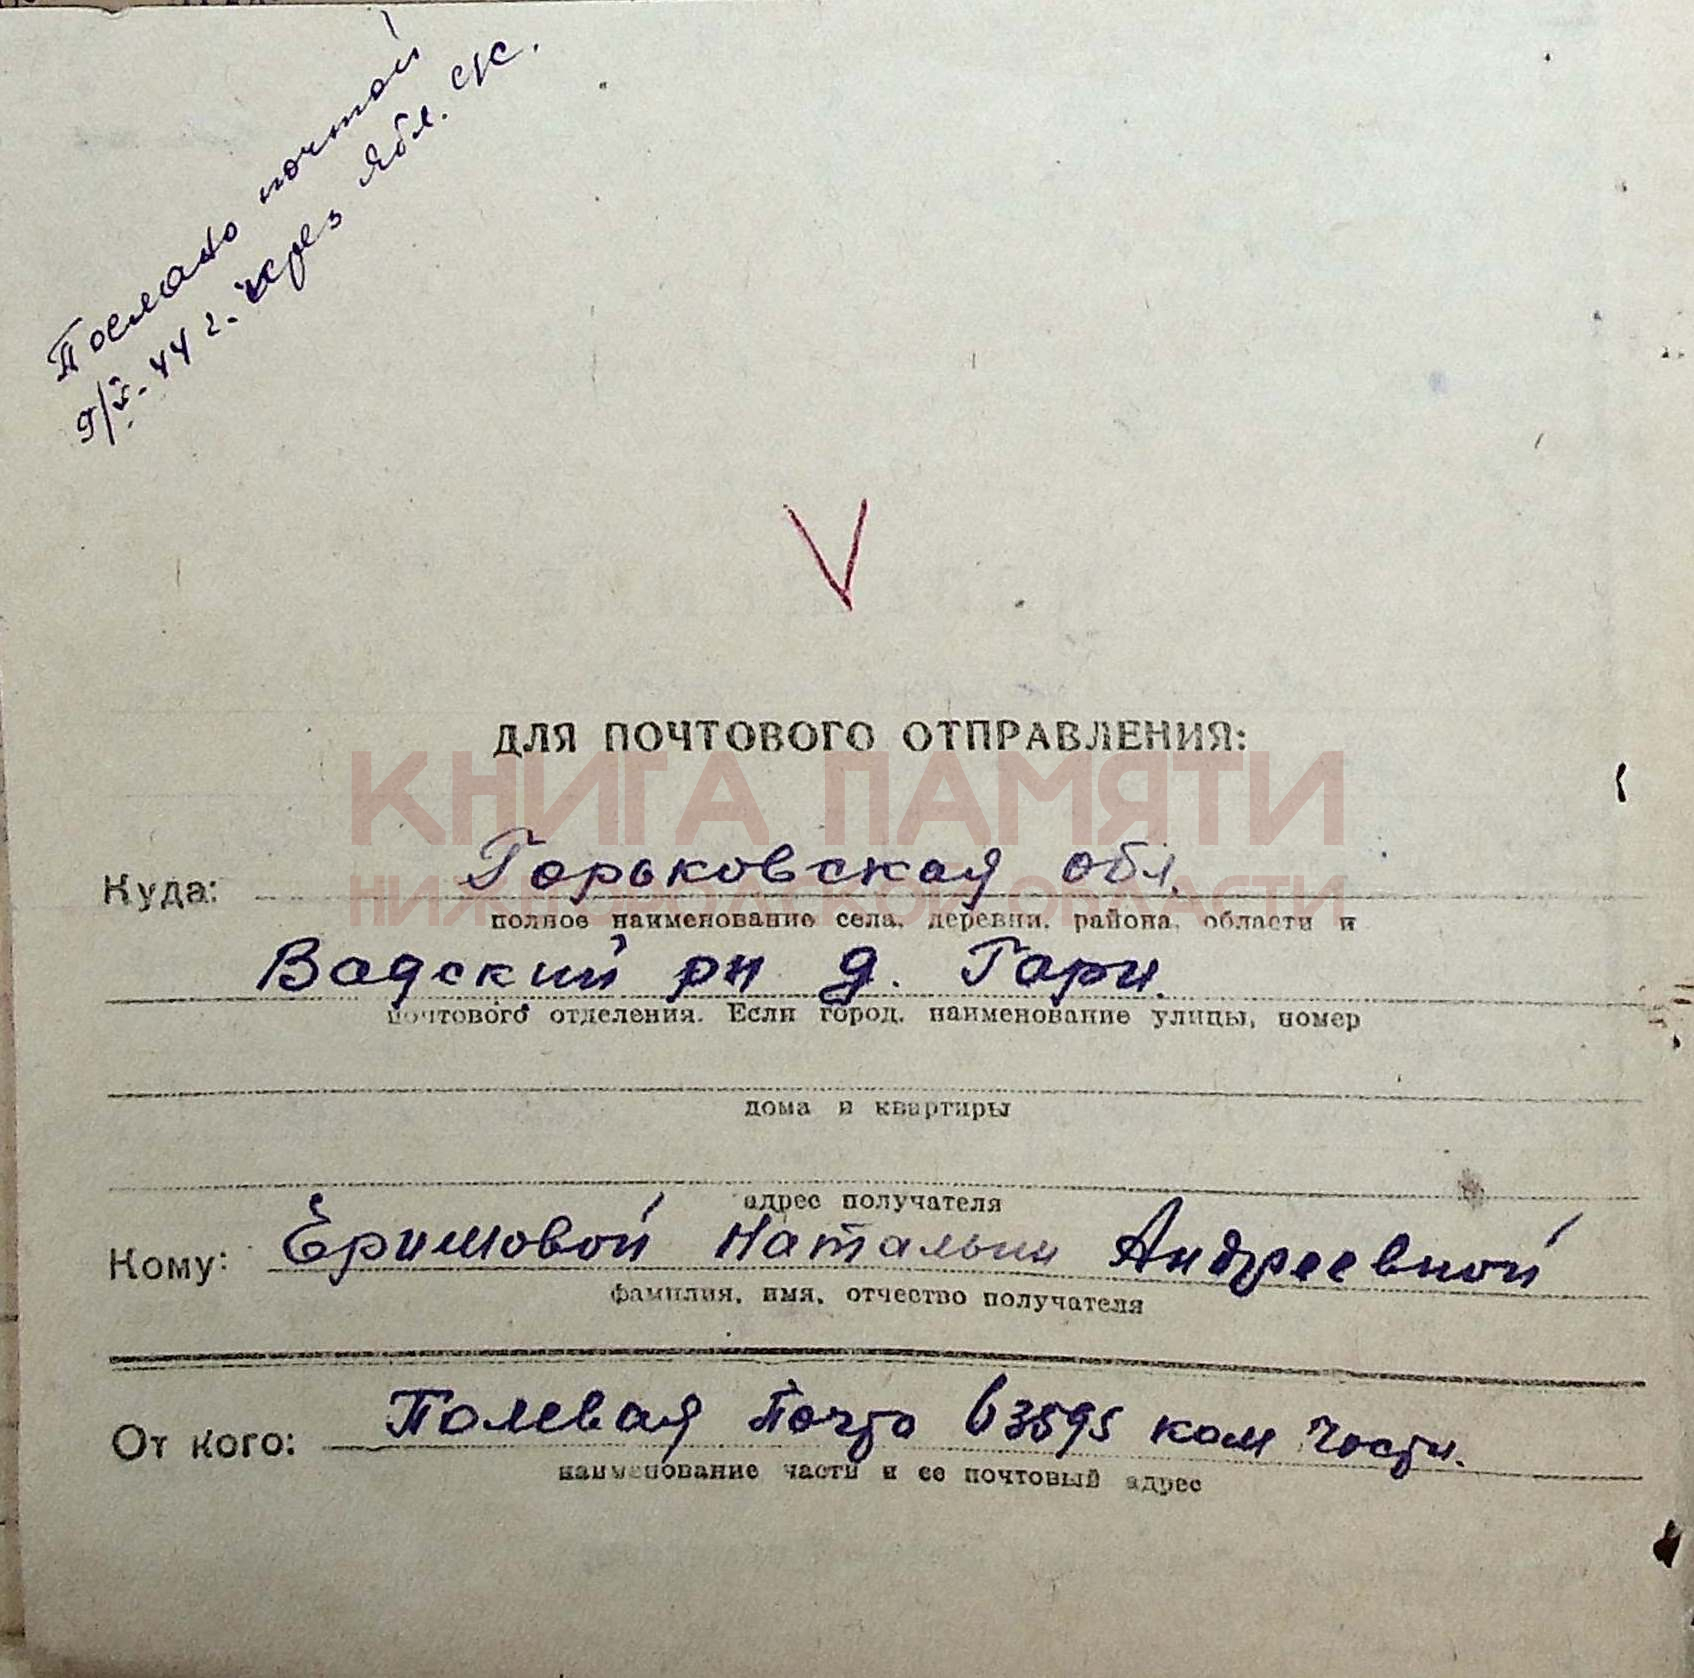 Послано почтой
9/V-44 г. через Ябл. с/с.
ДЛЯ ПОЧТОВОГО ОТПРАВЛЕНИЯ:
КНИГА ПАМЯТИ
Куда: Горьковская обл.
НИЖЕГОРОДСКОЙ ОБЛАСТИ
полное наименование села, деревни, района, области и
Вадский рн д. Гари.
почтового отделения. Если город, наименование улицы, номер
дома и квартиры
адрес получателя
Кому: Еримовой Натальи Андреевной
фамилия, имя, отчество получателя
От кого: Полевая почта 63595 ком части.
наименование части и ее почтовый адрес